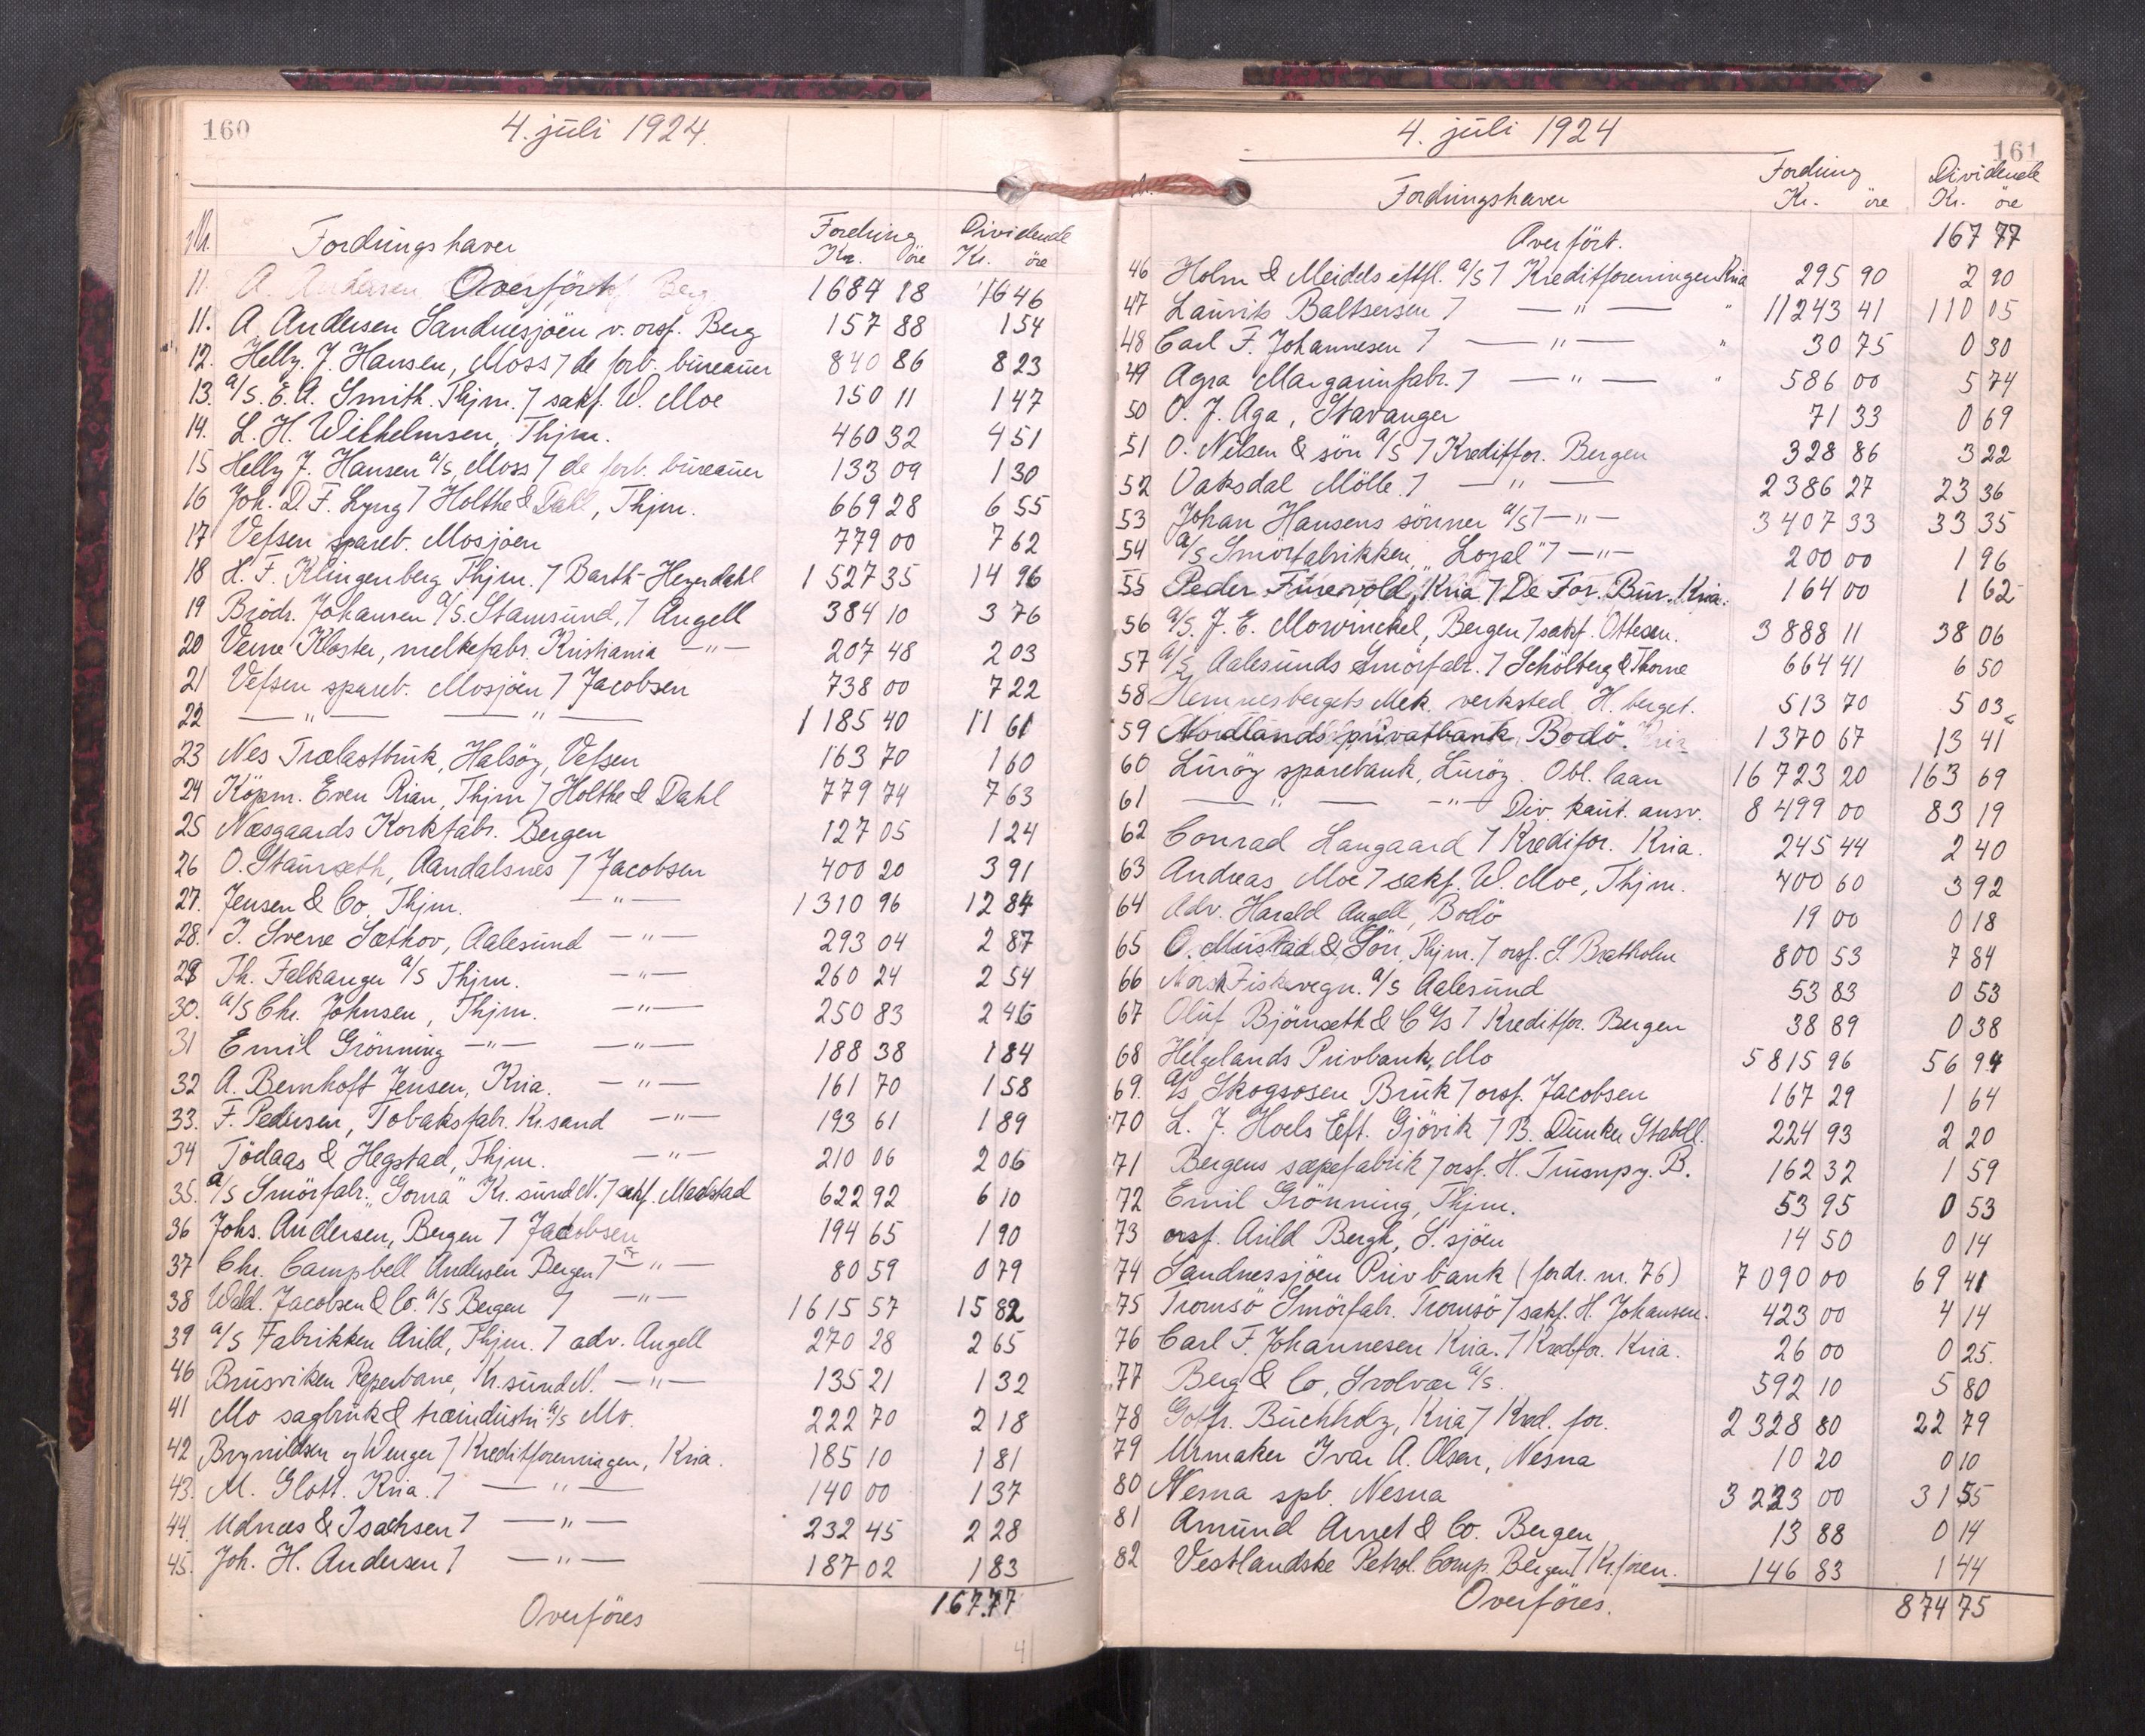 160
4. juli 1924.
Nr. Fordringshaver Fordring Kr. öre Dividende Kr. öre
Overfört 1684 18 16 46
11. A. Andersen Sandnesjöen v. orsf. Berg 157 88 1 54
12. Helly J. Hansen, Moss / de forb. bureauer 840 86 8 23
13. a/s. E. A. Smith. Thjm. / sakf. W. Moe 150 11 1 47
14. L. H. Wilhelmsen, Thjm. 460 32 4 51
15 Helly J. Hansen a/s, Moss / de forb. bureauer 133 09 1 30
16 Joh. D. F. Lyng / Holthe & Dahl, Thjm. 669 28 6 55
17 Vefsen spareb. Mosjöen 779 00 7 62
18 H. F. Klingenberg Thjm. / Barth-Heyerdahl 1 527 35 14 96
19 Brödr. Johansen a/s. Stamsund, / Angell 384 10 3 76
20 Verne Kloster, melkefabr. Kristiania — " — 207 48 2 03
21 Vefsen spareb. Mosjöen / Jacobsen 738 00 7 22
22 — " — — " — 1 185 40 11 61
23 Nes Trælastbruk, Halsöy, Vefsen 163 70 1 60
24 Köpm. Even Rian, Thjm / Holthe & Dahl 779 74 7 63
25 Næsgaards Korkfabr. Bergen 127 05 1 24
26 O. Stamsæth, Aandalsnes / Jacobsen 400 20 3 91
27. Jensen & Co, Thjm. — " — 1 310 96 12 84
28. J. Sverre Sæthov, Aalesund — " — 293 04 2 87
29 Th. Falkanger a/s Thjm. — " — 260 24 2 54
30. a/s Chr. Johnsen, Thjm. — " — 250 83 2 46
31 Emil Grönning — " — — " — 188 38 1 84
32 A. Bernhoft Jensen, Kria. — " — 161 70 1 58
33. F. Pedersen, Tobaksfabr. Kr.sand — " — 193 61 1 89
34 Tödaas & Hegstad, Thjm. — " — 210 06 2 06
35. a/s Smörfabr. "Goma" Kr. sund N. / sakf. Madstad 622 92 6 10
36 Johs. Andersen, Bergen / Jacobsen 194 65 1 90
37 Chr. Campbell Andersen Bergen / — " — 80 59 0 79
38 Wald. Jacobsen & Co. a/s Bergen / — " — 1 615 57 15 82
39 a/s Fabrikken Arild, Thjm. / adv. Angell 270 28 2 65
40 Brusviken Reperbane, Kr.sund N. — " — 135 21 1 32
41 Mo sagbruk & træindustri a/s Mo. 222 70 2 18
42 Brynildsen og Wenger / Kreditforeningen, Kria. 185 10 1 81
43. M. Glott. Kria. / — " — 140 00 1 37
44. Udnæs & Isachsen / — " — 232 45 2 28
45. Joh. H. Andersen / — " — 187 02 1 83
Overföres 167.77
4
161
4. juli 1924
Fordringshaver Fordring Kr. öre Dividende Kr. öre
Overfört. 167 77
46 Holm & Meidels eftfl. a/s / Kreditforeningen Kria 295 90 2 90
47 Laurits Baltsersen / — " — " 11243 41 110 05
48 Carl F. Johannesen / — " — " 30 75 0 30
49 Agra Margarinfabr. / — " — " 586 00 5 74
50 O. J. Aga, Stavanger 71 33 0 69
51 O. Nilsen & sön a/s / Kreditfor. Bergen 328 86 3 22
52 Vaksdal Mölle. / — " — 2386 27 23 36
53 Johan Hansens sönner a/s / — " — 3 407 33 33 35
54 a/s Smörfabrikken "Loyal" / — " — 200 00 1 96
55 Peder Furevold, Kria / De For. Bur. Kria. 164 00 1 62
56 a/s. J. E. Mowinckel, Bergen / sakf. Ottesen. 3 888 11 38 06
57 a/s Aalesunds Smörfabr. / Schölberg & Thorne 664 41 6 50
58 Hemnesbergets Mek. verksted H. berget. 513 70 5 03
59 Nordlands privatbank, Bodö. 1 370 67 13 41
60 Luröy sparebank, Luröy. Obl. laan 16 723 20 163 69
61 — " — — " — Div. kaut. ansv. 8 499 00 83 19
62 Conrad Langaard / Kredifor. Kria. 245 44 2 40
63 Andreas Moe / sakf. W. Moe, Thjm. 400 60 3 92
64 Adv. Harald Angell, Bodö 19 00 0 18
65 O. Mustad & Sön, Thjm. / orsf. S. Bratholm 800 53 7 84
66 Norsk Fiskevegn. a/s Aalesund 53 83 0 53
67 Oluf Björnseth & C a/s / Kreditfor. Bergen 38 89 0 38
68 Helgelands Privbank, Mo 5 815 96 56 94
69. a/s Skogsosen Bruk / orsf. Jacobsen 167 29 1 64
70 L. J. Hoels Eft. Gjövik / B. Dunker Stabell. 224 93 2 20
71 Bergens sæpefabrik / orsf. H. Trumpy. B. 162 32 1 59
72 Emil Grönning, Thjm. 53 95 0 53
73 orsf. Arild Bergh, S. sjöen 14 50 0 14
74 Sandnessjöen Privbank (fordr. nr. 76) 7 090 00 69 41
75 Tromsö Smörfabr. Tromsö / sakf. H. Johansen. 423 00 4 14
76 Carl F. Johannesen Kria. / Kredfor. Kria. 26 00 0 25.
77 Berg & Co, Svolvær a/s. 592 10 5 80
78 Gotfr. Buchholz, Kria / Kred. for. 2 328 80 22 79
79 Urmaker Ivar A. Olsen, Nesna 10 20 0 10
80 Nesna spb. Nesna 3 223 00 31 55
81 Amund Amet & Co. Bergen 13 88 0 14
82 Vestlandske Petrol. Comp. Bergen / Kr.foren. 146 83 1 44
Overföres. 874 75